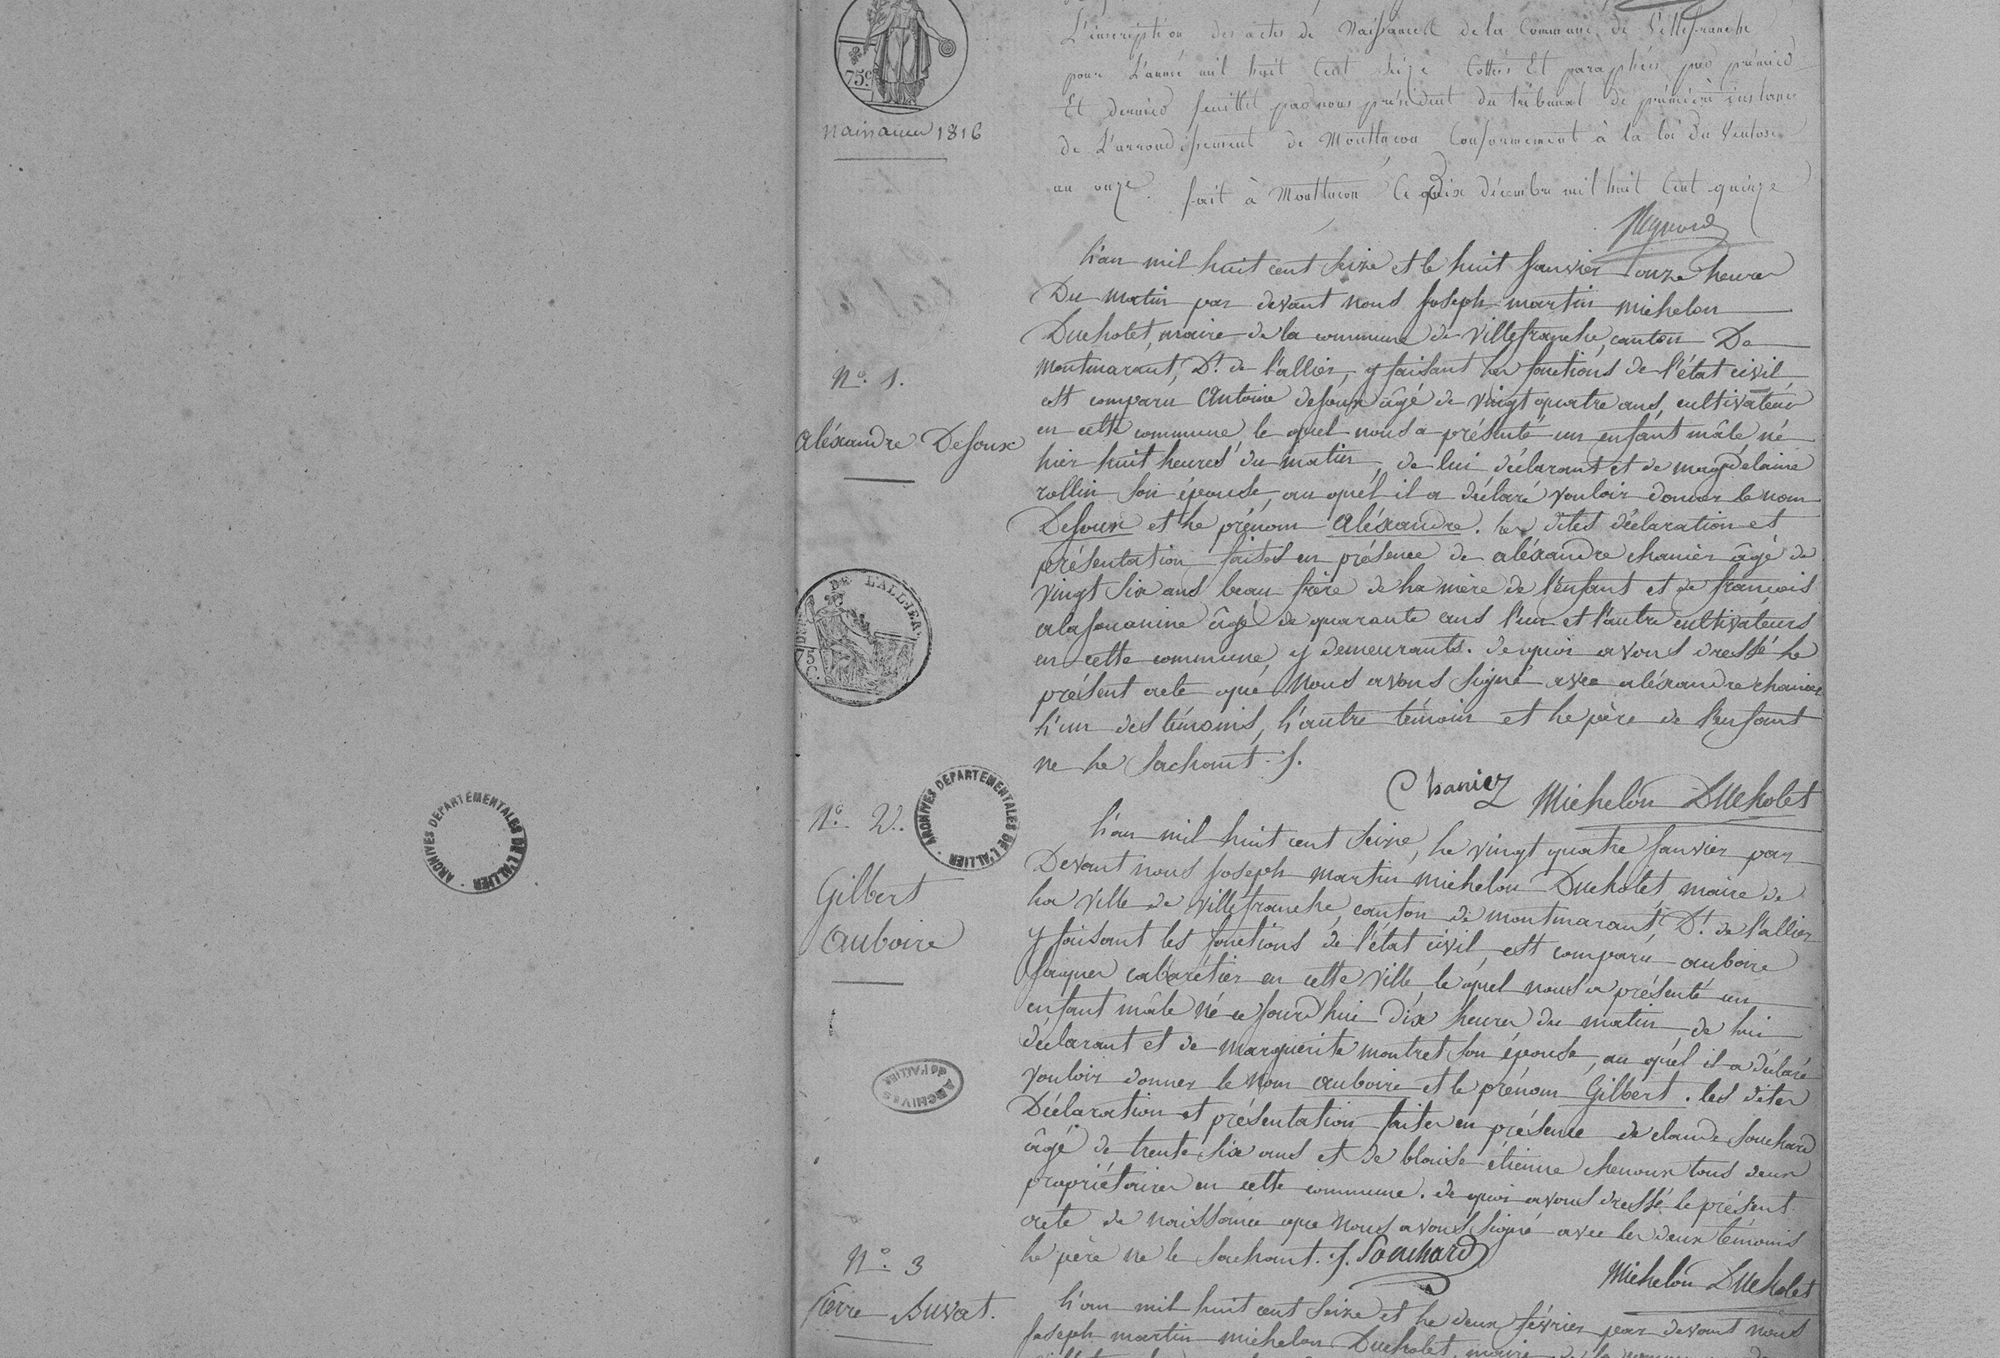 L'inscription des actes de Naissances de la Commune de Villefranche
pour L'année mil huit Cent Seize Cottés Et paraphées par prémier
Et dernier feuillet par nous président du tribunal de prémière instance
de L'arrondissement de Montluçon Conformement à la loi du Ventose
an onze. fait à Montlucon Ce dix décembre mil huit Cent quinze
75c
Naissances 1816
L'an mil huit cent Seize et le huit Janvier onze heures
Du matin par devant nous Joseph martin michelon
Ducholet, maire de la commune de Villefranche, canton De
montmarant, Dt. de l'allier, y faisant les fonctions de l'état civil
N°. 1.
est comparu Antoine deSoux âgé de vingt quatre ans, cultivateur
en cette commune, le quel nous a présenté un enfant mâle né
Aléxandre DeSoux
hier huit heures du matin, de lui déclarant et de magdelaine
rollin son épouse, au quél il a déclaré vouloir donner le nom
DeSoux et le prénom Aléxandre. les dites déclaration et
présentation faites en présence de aléxandre chanier âgé de
vingt six ans beau frère de la mère de l'enfant et de francois
alafouanine âgé de quarante ans l'un et l'autre cultivateurs
DE L'ALLIER
en cette commune, y demeurants. de quoi avons dressé le
présent acte que nous avons signé avec aléxandre chanier
l'un des témoins, l'autre témoin et le père de l'enfant
ne le sachant ./.
Chaniez Michelon Ducholet
ARCHIVES DEPARTEMENTALES DE L'ALLIER
ARCHIVES DEPARTEMENTALES DE L'ALLIER
N°. 2.
L'an mil huit cent Seize, le vingt quatre Janvier par
Devant nous Joseph martin michelon Ducholet, maire de
Gilbert
Auboire
la ville de Villefranche, canton de montmarant, Dt. de l'allier
y faisant les fonctions de l'état civil, est comparu auboire
Jaques cabarétier en cette ville, le quel nous a présenté un
enfant mâle né ce jourd'hui dix heures du matin de lui
déclarant et de marguerite montret son épouse, au quél il a déclaré
ARCHIVES de L'ALLIER
vouloir donner le nom auboire et le prénom Gilbert. les dites
Déclaration et présentation faites en présence de claude Souchard
âgé de trente six ans et de blaise étienne chenoux tous deux
propriétaires en cette commune. de quoi avons dressé le présent
acte de naissance que nous avons signé avec les deux témoins
le père ne le sachant. ./. Souchard
Michelon Ducholet
N°. 3
Pierre Buvat.
L'an mil huit cent Seize et le deux février par devant nous
Joseph martin michelon Ducholet, maire de la commune de